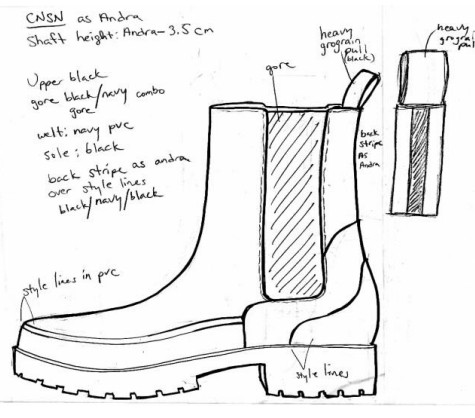 CNSN as Andra
Shaft height: Andra-3.5cm
Upper black
gore black/navy combo
gore
welt: navy pvc
sole: black
back stripe as andra
over style lines
black/navy/black
style lines in pvc
gore
heavy
grograin
pull
(black)
back
stripe
As
Andra
style lines
heavy
grograin
pull